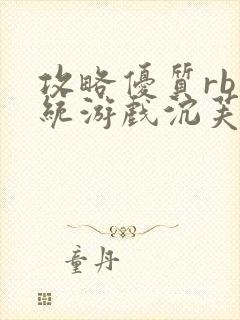 攻略優質rb
統游戲沉芙
童丹